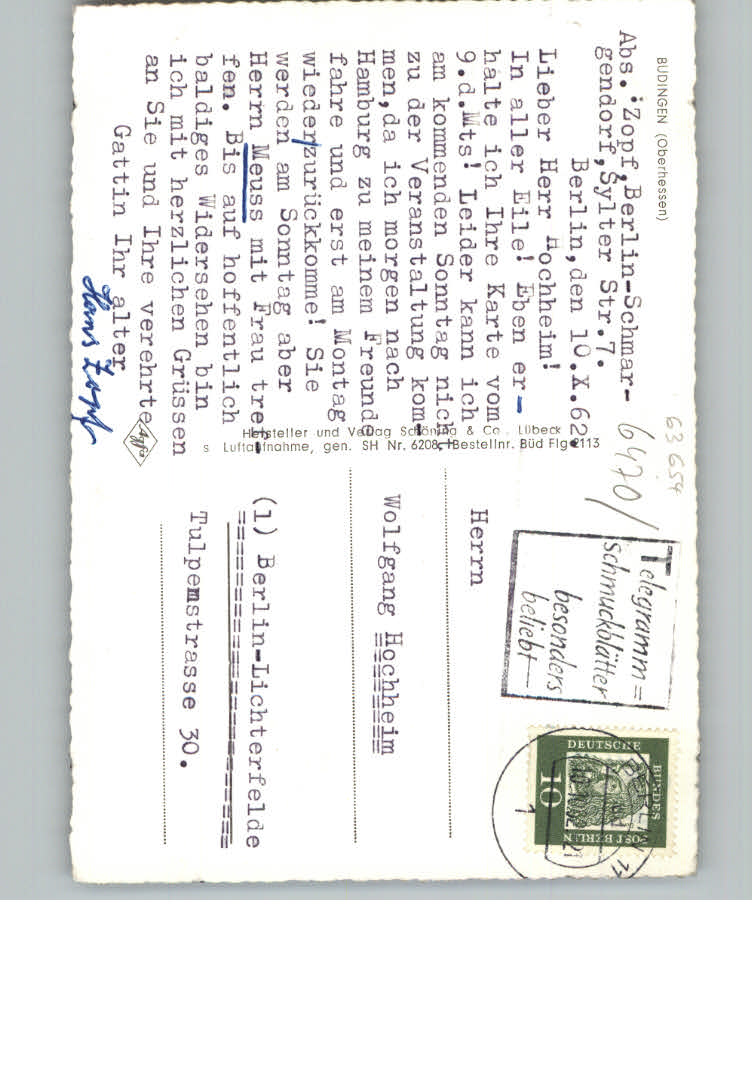 BÜDINGEN (Oberhessen)
Abs.:Zopf,Berlin-Schmar-
gendorf,Sylter Str.7.
Berlin,den 10.X.62.
Lieber Herr Hochheim!
In aller Eile! Eben er-
halte ich Ihre Karte vom
9.d.Mts! Leider kann ich
am kommenden Sonntag nicht
zu der Veranstaltung kom-
men,da ich morgen nach
Hamburg zu meinem Freunde
fahre und erst am Montag
wieder/zurückkomme! Sie
werden am Sonntag aber
Herrn Meuss mit Frau tref-
fen. Bis auf hoffentlich
baldiges Widersehen bin
ich mit herzlichen Grüssen
an Sie und Ihre verehrte
Gattin Ihr alter
Hans Zopf
Hersteller und Verlag Schöning & Co., Lübeck
s Luftaufnahme, gen. SH Nr. 6208 Bestellnr. Büd Flg 2113
Agfa
63 654
6470/
Telegramm=
schmuckblätter
besonders
beliebt
DEUTSCHE
BUNDES
POST BERLIN
10
BERLIN 11
10.10.62-21
1
Herrn
Wolfgang Hochheim
(1) Berlin-Lichterfelde
Tulpemstrasse 30.